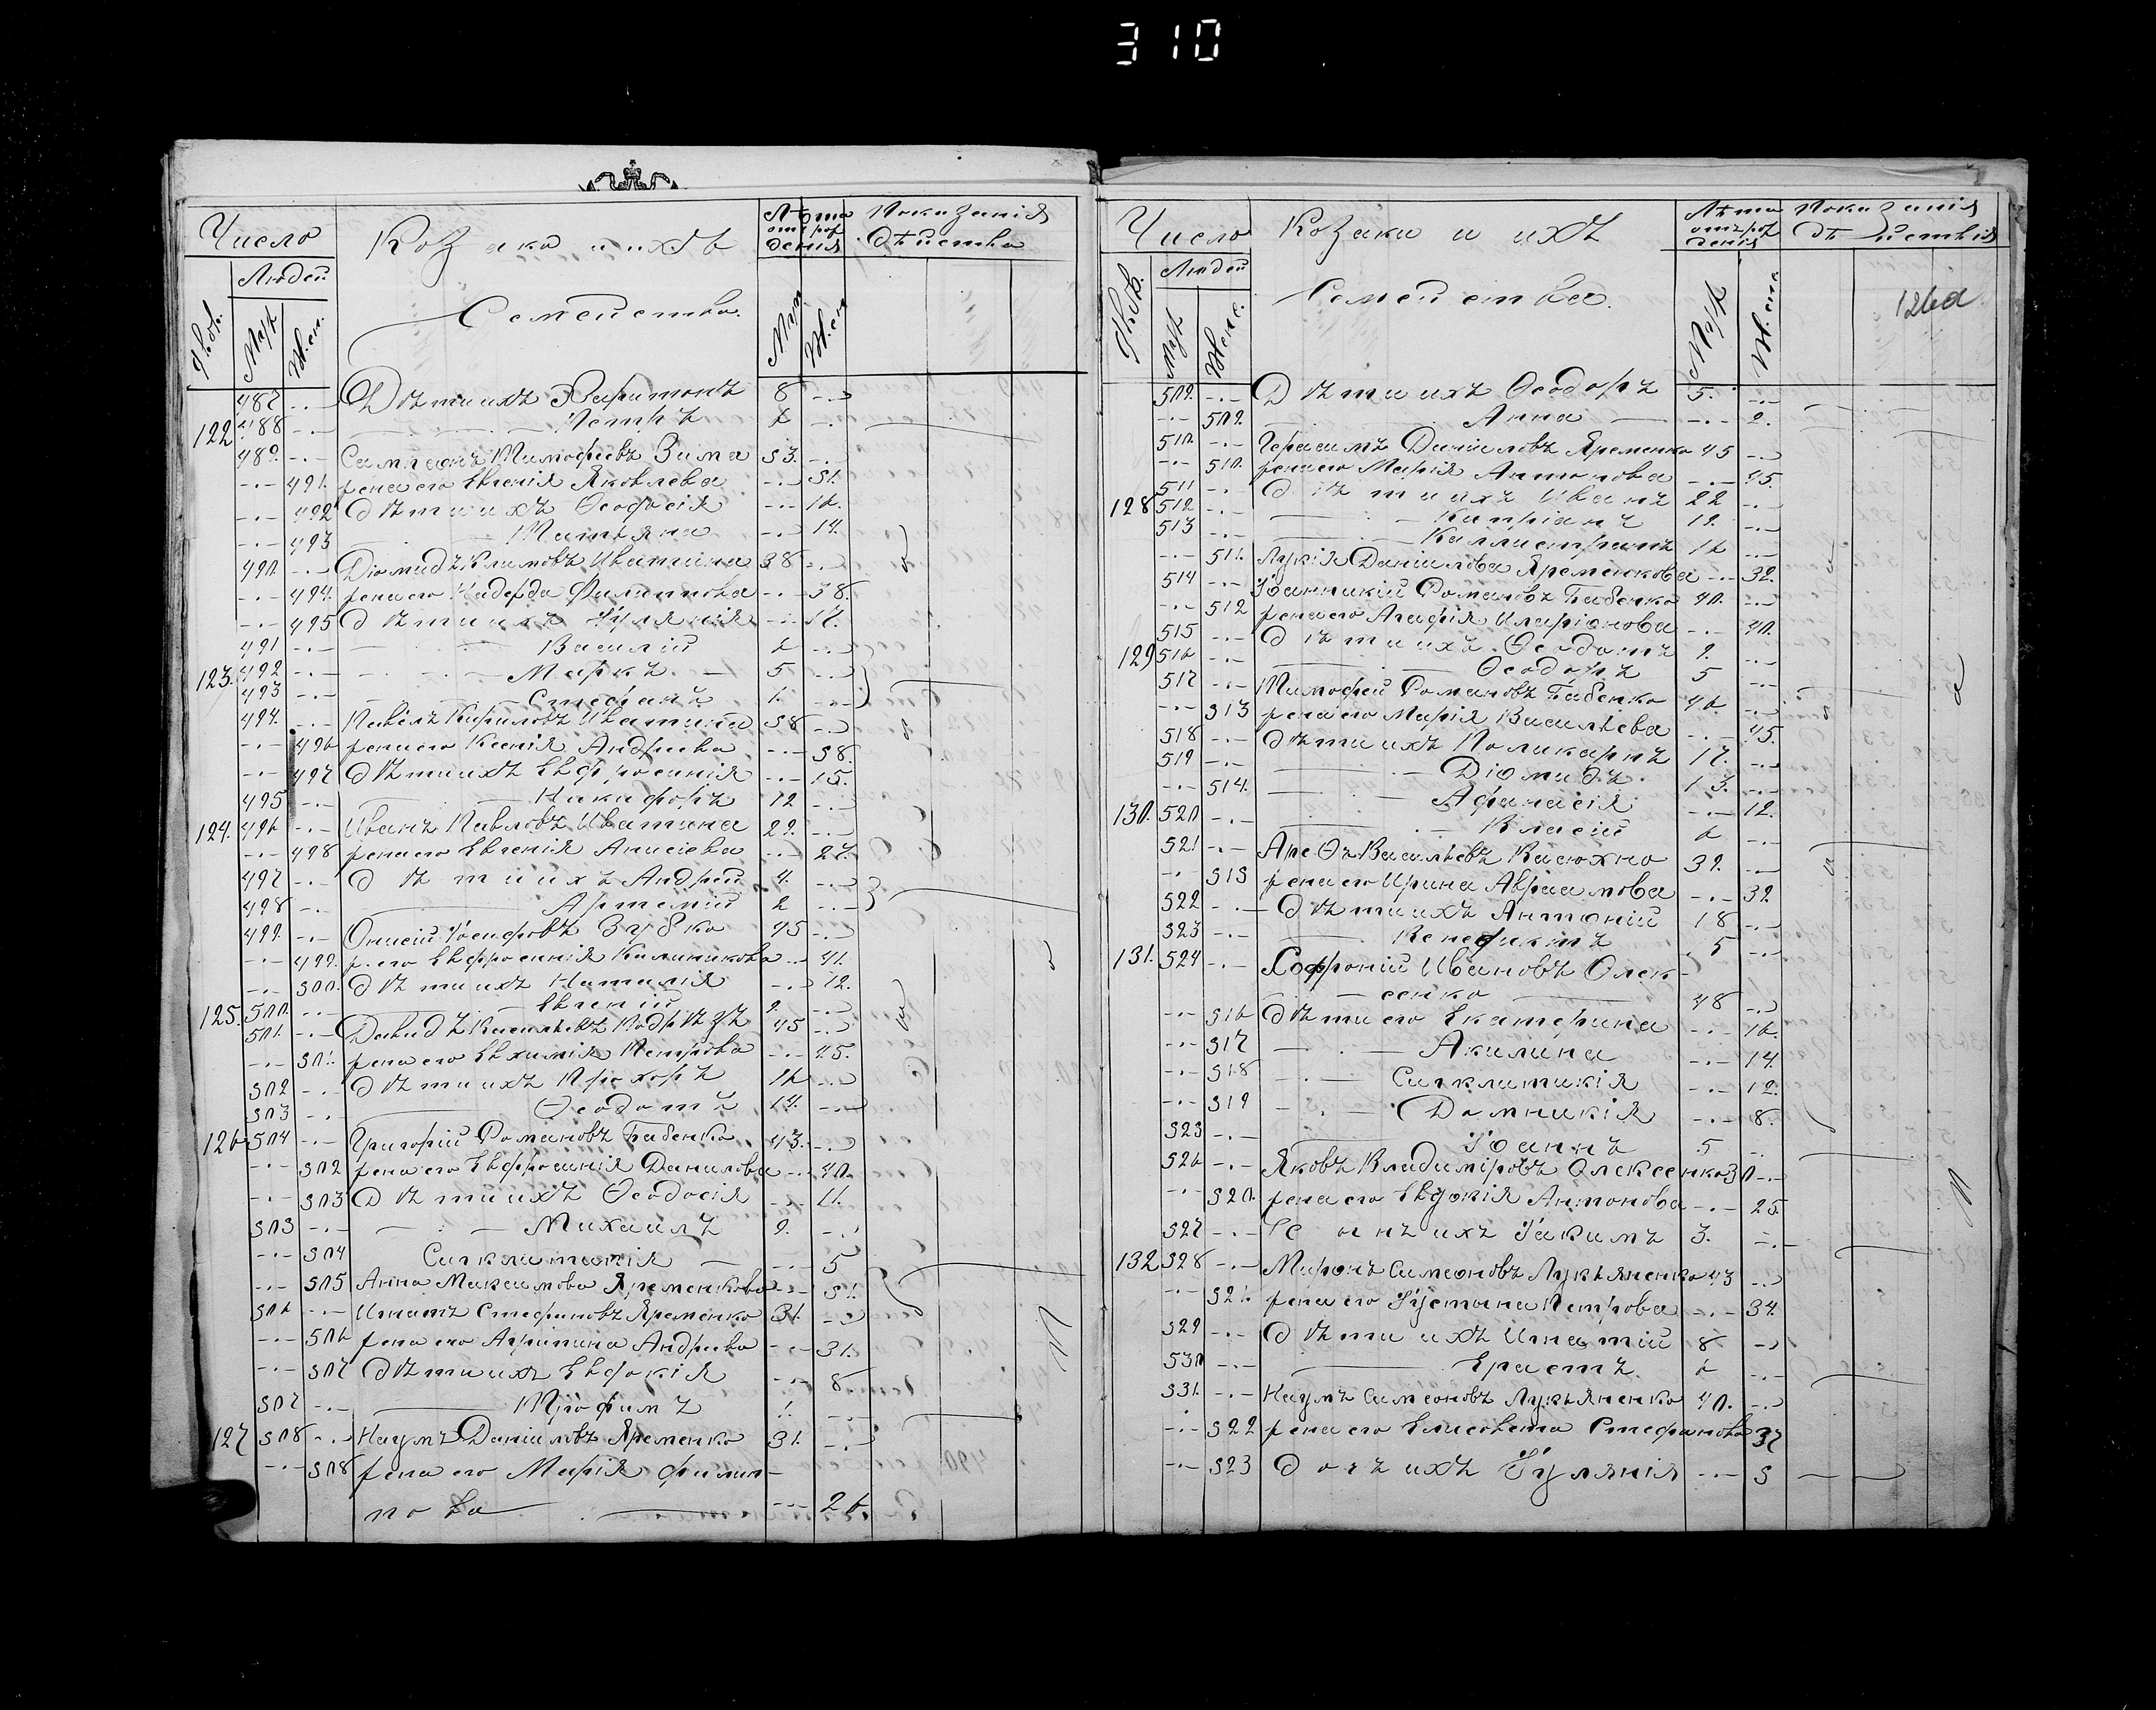 310
Число
Козако и ихъ
Лѣта отъ рож дения
Показанія дѣиства
Людей
Семейства.
Двор.
Муж
Жен.
Муж
Жен
487 -.- Дѣти ихъ Паримонъ 8 -.-
122 488 -.- Петръ 6 -.-
489. -.- Сампсонъ Тимофѣевъ Зима 53. -.-
-.- 491. жена его Евгенія Яковлева -.- 51.
-.- 492 дѣти ихъ Феодосія -.- 16.
-.- 493 Татьяна -.- 14.
490. -.- Діомидъ Климовъ Ивашина 38 -.-
-.- 494. жена его Надежда Филиппова -.- 38.
-.- 495 дѣти ихъ Іулянія -.- 17.
491 -.- Василій 6 -.-
123. 492 -.- Маркъ 5 -.-
493 -.- Стефанъ 1. -.-
494. -.- Павелъ Кириловъ Ивашина 38 -.-
-.- 496 жена его Ксенія Андреева -.- 38.
-.- 497 дѣти ихъ Евфросинія -.- 15.
495 -.- Никифоръ 12 -.-
124. 496 -.- Иванъ Павловъ Ивашина 29. -.-
-.- 498 жена его Евгенія Анисіева -.- 27.
497 -.- дѣти ихъ Андрей 4. -.-
498 -.- Артемій 2 -.-
499. -.- Онисій Іосифовъ Зубко 45 -.-
-.- 499. ж. его Евфросинія Калиникова -.- 41.
-.- 500. дѣти ихъ Наталія -.- 12.
125. 500. -.- Евгеній 9. -.-
501. -.- Давидъ Васильевъ Кодрѣзъ 45 -.-
-.- 501. жена его Евхимія Петрова -.- 45.
502 -.- дѣти ихъ Прохоръ 16 -.-
503 -.- Феодотъ 14. -.-
126 504 -.- Григорій Романовъ Бабенко 43. -.-
-.- 502 жена его Евфросинія Данилова -.- 40.
-.- 503 Дѣти ихъ Феодосія -.- 11.
503 -.- Михаилъ 9. -.-
-.- 504 Сигклитикія -.- 5
-.- 505 Анна Максимова Яременкова -.- 51.
506 -.- Игнатъ Стефановъ Яременко 31. -.-
-.- 506 жена его Агрипина Андреева -.- 31.
-.- 507 дѣти ихъ Евдокія -.- 8.
507 -.- Трофимъ 1. -.-
127 508 -.- Наумъ Даниловъ Яременко 31. -.-
-.- 508 жена его Марія Филип-
пова -.- 26.
Число
Козаки и ихъ
Лѣта отъ рож денія
Показанія дѣиствія
Людей
Семейства.
Двор.
Муж
Женс.
Муж
Женс
126а
509. -.- Дѣти ихъ Феодоръ 5. -.-
-.- 509. Анна -.- 2.
510. -.- Герасимъ Даниловъ Яременко 45 -.-
-.- 510. жена его Марія Антонова -.- 45.
511 -.- дѣти ихъ Иванъ 22 -.-
128 512 -.- Кипріанъ 19. -.-
513 -.- Каллистратъ 16 -.-
-.- 511. Лукія Данилова Яременкова -.- 39.
514 -.- Іоанникій Романовъ Бабенко 40. -.-
-.- 512 жена его Агафія Иларіонова -.- 40.
515 -.- дѣти ихъ Феодотъ 9. -.-
129 516 -.- Феодоръ 5 -.-
517 -.- Тимофей Романовъ Бабенко 46. -.-
-.- 513 жена его Марія Васильева -.- 45.
518 -.- дѣти ихъ Поликарпъ 17. -.-
519 -.- Діомидъ 13. -.-
-.- 514. Афанасія -.- 12.
130. 520 -.- Власій 6 -.-
521 -.- Васильевъ Васюхно 39. -.-
-.- 515 жена его Ирина Авраамова -.- 39
522 -.- дѣти ихъ Антоній 18 -.-
523 -.- Венедиктъ 5 -.-
131. 524 -.- Софроній Ивановъ Олек-
сенко 48 -.-
-.- 516 дѣти его Екатерина -.- 16.
-.- 517 Акилина -.- 14.
-.- 518 Сигклитикія -.- 12.
-.- 519 Домникія -.- 8.
525 -.- Іоаннъ 5
526 -.- Яковъ Владиміровъ Олексенко 30 -.-
-.- 520. жена его Евдокія Антонова -.- 25.
527 -.- Сынъ ихъ Іакимъ 3. -.-
132 528 -.- Миронъ Симеоновъ Лукьяненко 43 -.-
-.- 521. жена его Іустина Петрова -.- 34.
529 -.- дѣти ихъ Игнатій 8 -.-
530 -.- Ерастъ. 6 -.-
531. -.- Наумъ Симеоновъ Лукьяненко 40. -.-
-.- 522 жена его Елисовета Стефанова 37
-.- 523 дочь ихъ Іулянія -.- 5